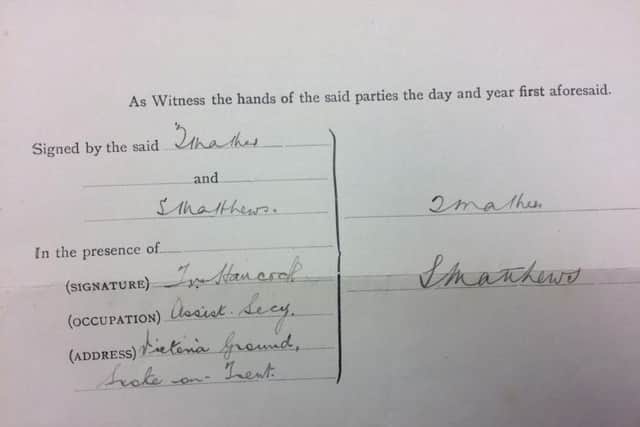 As Witness the hands of the said parties the day and year first aforesaid.
Signed by the said T Mather
and
S Matthews.
T Mather
In the presence of
(SIGNATURE) Hancock
S Matthews
(OCCUPATION) Assist. Secy.
(ADDRESS) Victoria Ground,
Stoke-on-Trent.